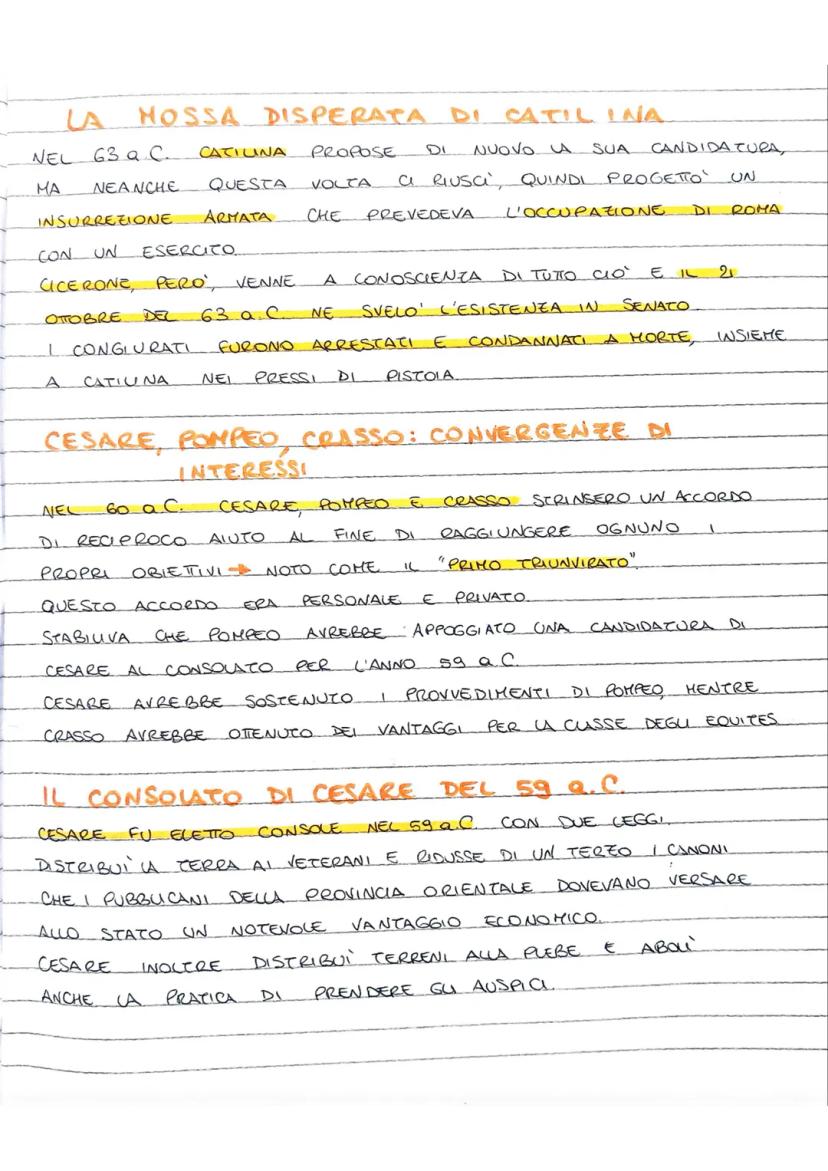 LA MOSSA DISPERATA DI CATILINA
NEL 63 a C. CATILINA PROPOSE DI NUOVO LA SUA CANDIDATURA,
MA NEANCHE QUESTA VOLTA CI RIUSCÌ, QUINDI PROGETTÒ UN
INSURREZIONE ARMATA CHE PREVEDEVA L'OCCUPAZIONE DI ROMA
CON UN ESERCITO.
CICERONE, PERÒ, VENNE A CONOSCIENZA DI TUTTO CIÒ E IL 21
OTTOBRE DEL 63 a.C. NE SVELÒ L'ESISTENZA IN SENATO.
I CONGIURATI FURONO ARRESTATI E CONDANNATI A MORTE, INSIEME
A CATILINA NEI PRESSI DI PISTOIA.
CESARE, POMPEO, CRASSO: CONVERGENZE DI
INTERESSI
NEL 60 a.C. CESARE, POMPEO E CRASSO STRINSERO UN ACCORDO
DI RECIPROCO AIUTO AL FINE DI RAGGIUNGERE OGNUNO I
PROPRI OBIETTIVI → NOTO COME IL "PRIMO TRIUNVIRATO".
QUESTO ACCORDO ERA PERSONALE E PRIVATO.
STABILIVA CHE POMPEO AVREBBE APPOGGIATO UNA CANDIDATURA DI
CESARE AL CONSOLATO PER L'ANNO 59 a.C.
CESARE AVREBBE SOSTENUTO I PROVVEDIMENTI DI POMPEO, MENTRE
CRASSO AVREBBE OTTENUTO DEI VANTAGGI PER LA CLASSE DEGLI EQUITES.
IL CONSOLATO DI CESARE DEL 59 a.C.
CESARE FU ELETTO CONSOLE NEL 59 a.C. CON DUE LEGGI
DISTRIBUÌ LA TERRA AI VETERANI E RIDUSSE DI UN TERZO I CANONI
CHE I PUBBLICANI DELLA PROVINCIA ORIENTALE DOVEVANO VERSARE
ALLO STATO UN NOTEVOLE VANTAGGIO ECONOMICO.
CESARE INOLTRE DISTRIBUÌ TERRENI ALLA PLEBE E ABOLÌ
ANCHE LA PRATICA DI PRENDERE GLI AUSPICI.